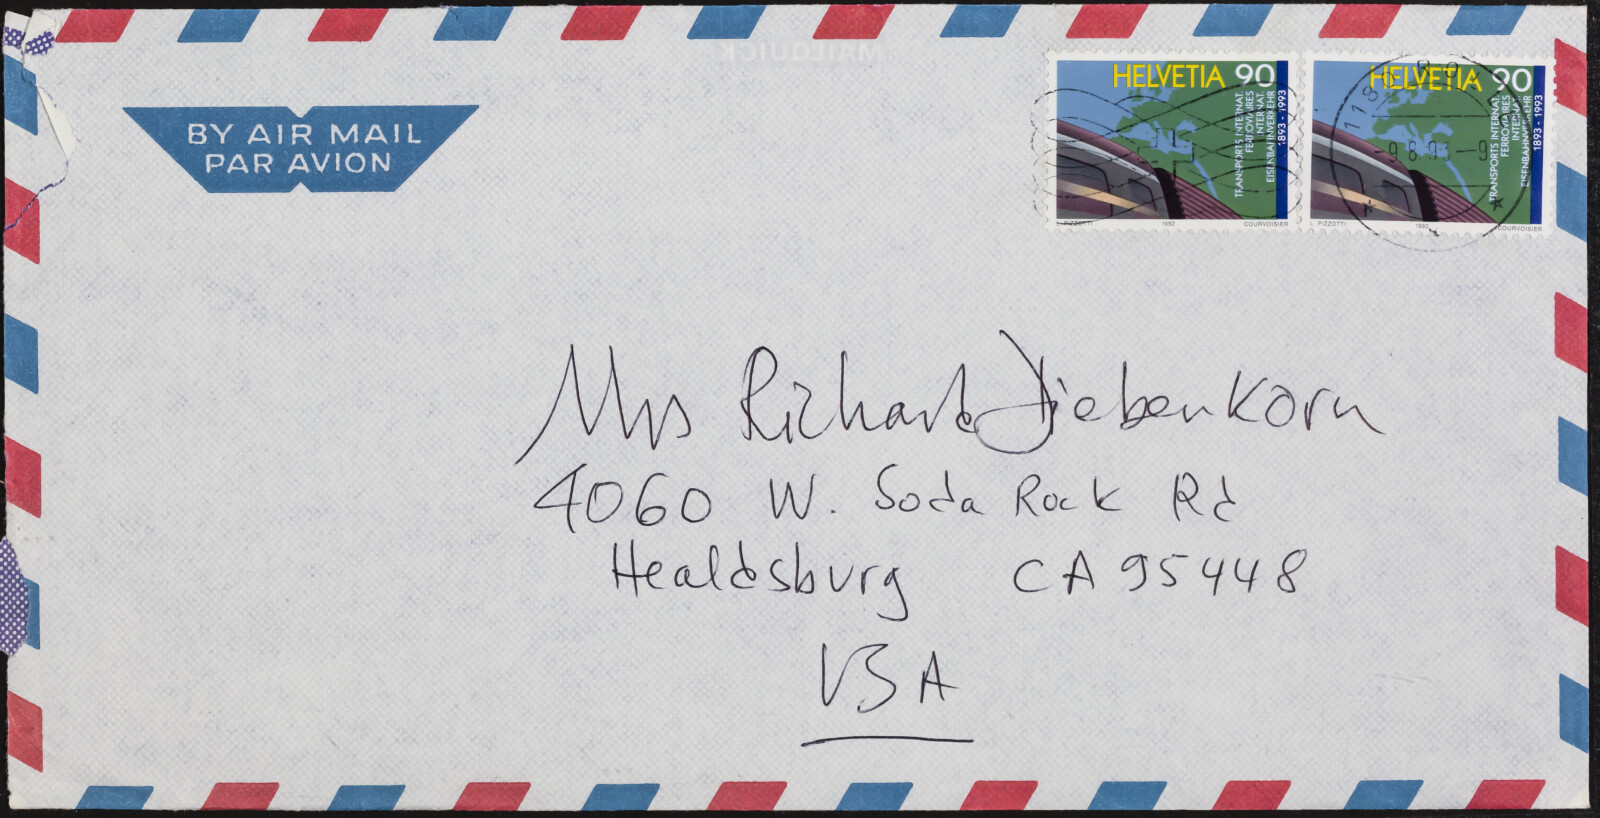 BY AIR MAIL
PAR AVION
HELVETIA 90
TRANSPORTS INTERNAT.
FERROVIAIRES
INTERNAT.
EISENBAHNVERKEHR
1893 - 1993
PIZZOTTI 1992 COURVOISIER
HELVETIA 90
TRANSPORTS INTERNAT.
FERROVIAIRES
INTERNAT.
EISENBAHNVERKEHR
1893 - 1993
PIZZOTTI 1992 COURVOISIER
Mrs Richard Diebenkorn
4060 W. Soda Rock Rd
Healdsburg CA 95448
USA